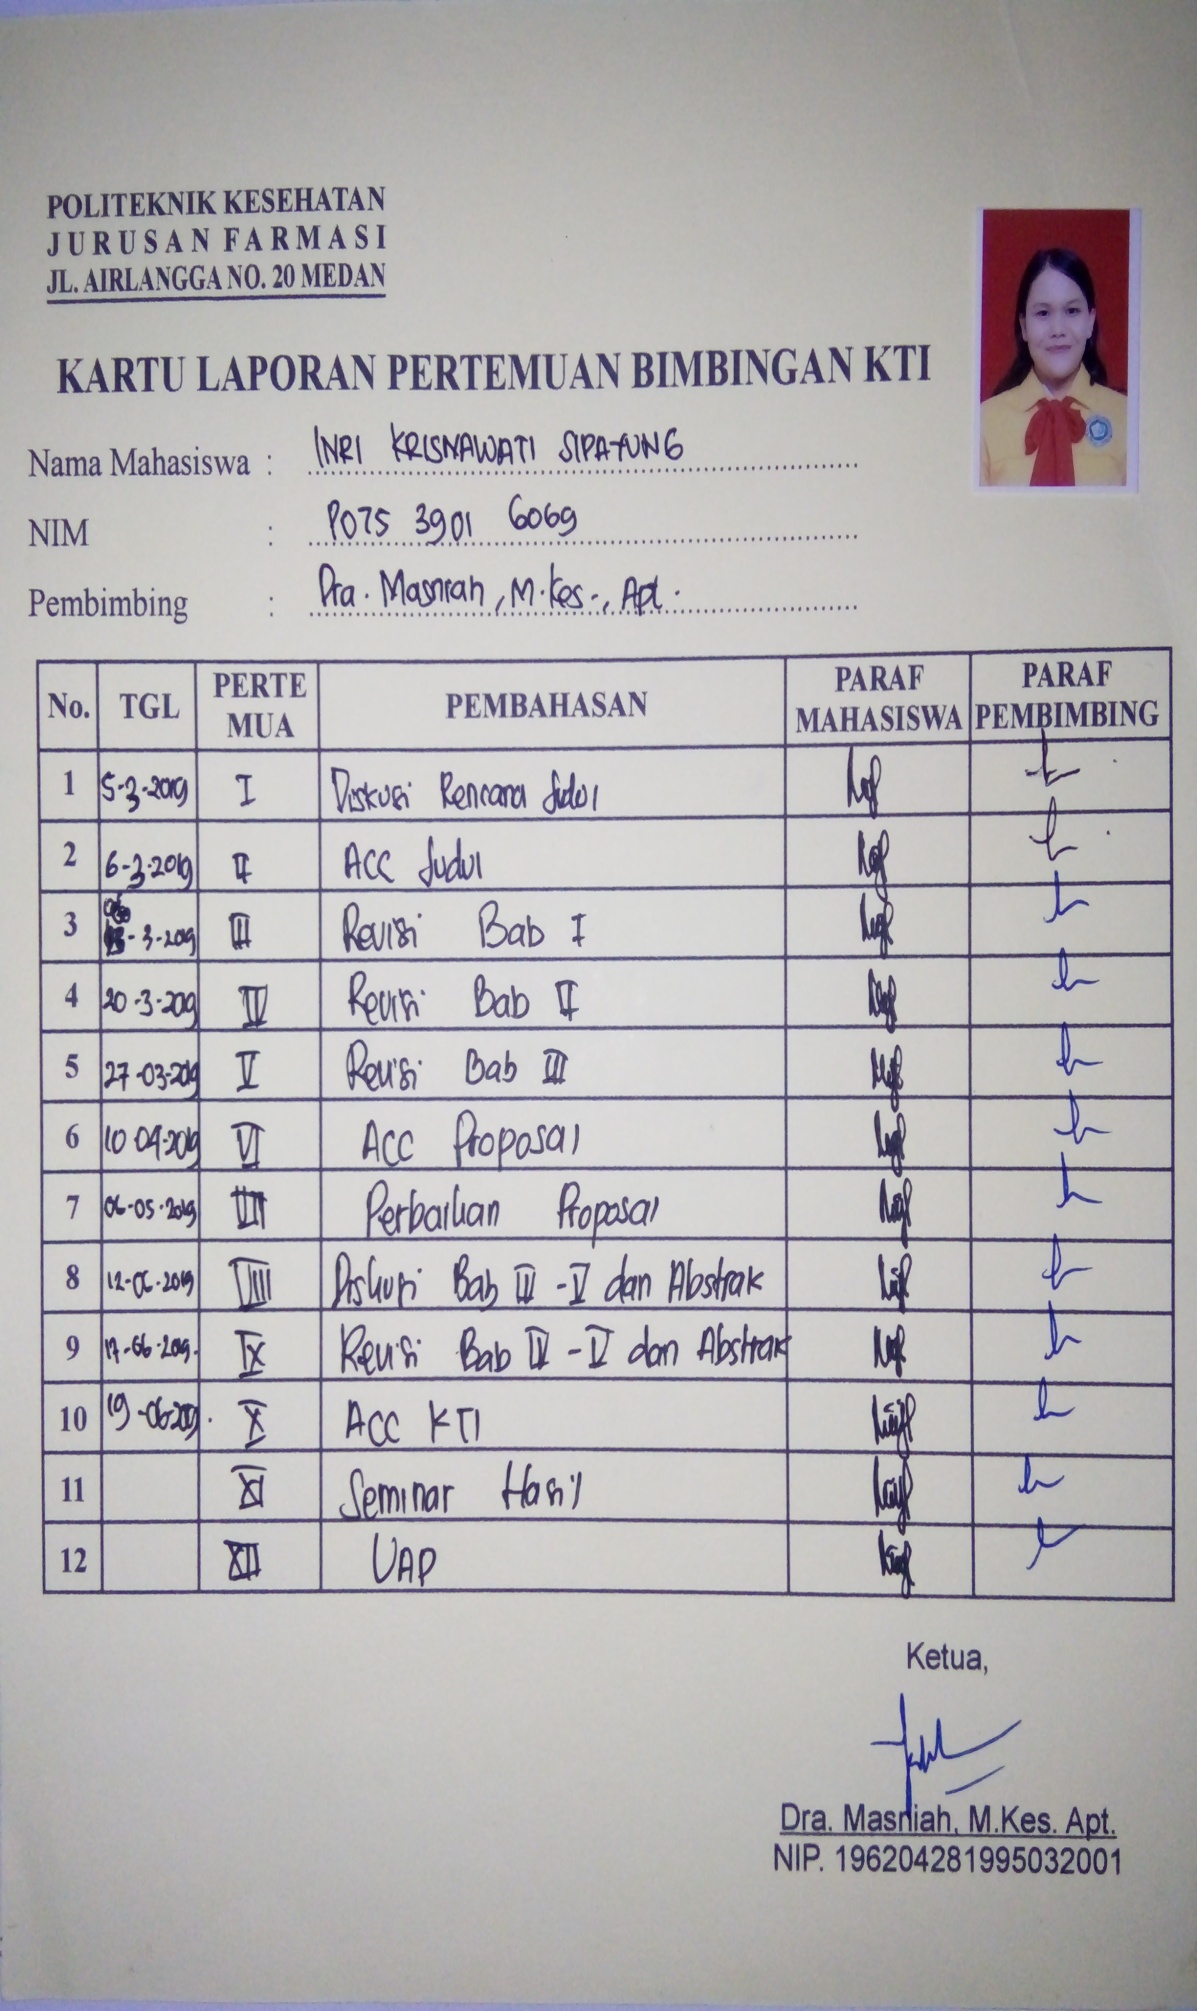 POLITEKNIK KESEHATAN
JURUSAN FARMASI
JL. AIRLANGGA NO. 20 MEDAN
KARTU LAPORAN PERTEMUAN BIMBINGAN KTI
Nama Mahasiswa : INRI KRISNAWATI SIPAYUNG
NIM : P075 3901 6069
Pembimbing : Dra. Masniah, M.Kes., Apt.
No. TGL PERTE MUA PEMBAHASAN PARAF MAHASISWA PARAF PEMBIMBING
1 5-3-2019 I Diskusi Rencana Judul
2 6-3-2019 II ACC Judul
3 -3-2019 III Revisi Bab I
4 20-3-2019 IV Revisi Bab II
5 27-03-2019 V Revisi Bab III
6 10 04-2019 VI ACC Proposal
7 06-05-2019 VII Perbaikan Proposal
8 12-06-2019 VIII Diskusi Bab - V dan Abstrak
9 17-06-2019. IX Revisi Bab IV - V dan Abstrak
10 19-06-2019. X ACC KTI
11 XI Seminar Hasil
12 XII UAP
Ketua,
Dra. Masniah, M.Kes. Apt.
NIP. 196204281995032001